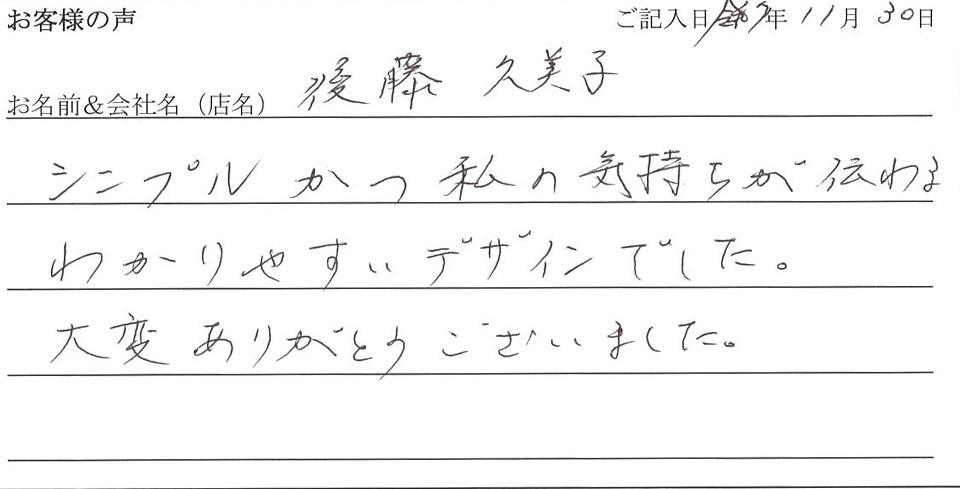 お客様の声
ご記入日 年 11月 30日
お名前&会社名（店名） 後藤 久美子
シンプル かつ 私の気持ちが伝わる
わかりやすいデザインでした。
大変ありがとうございました。